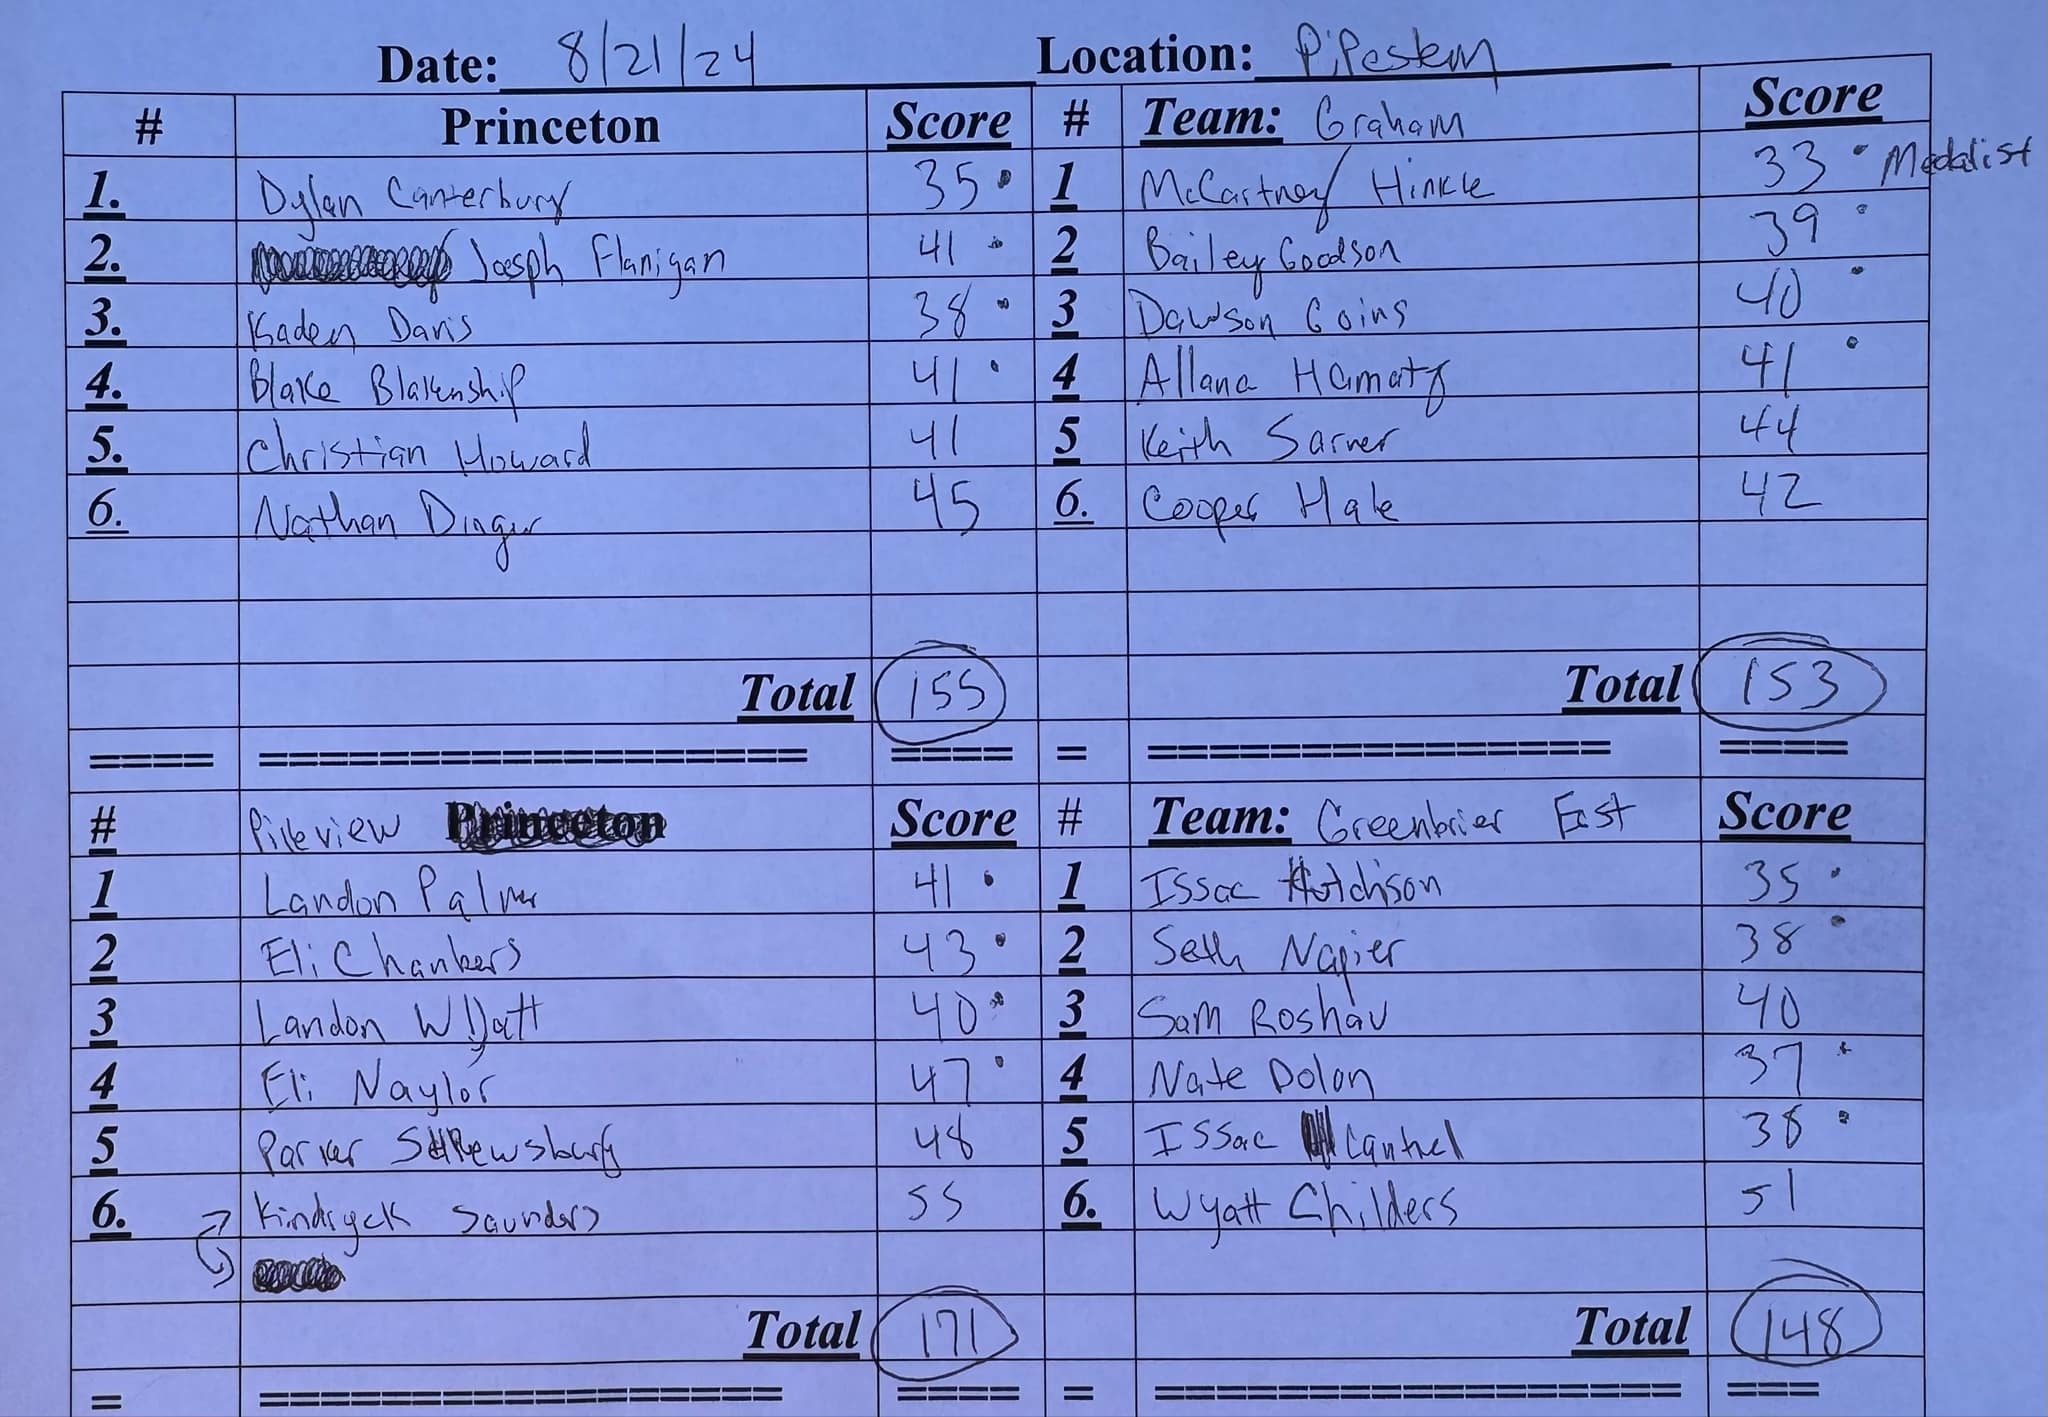 Date: 8/21/24 Location: Pipestem
# Princeton Score # Team: Graham Score
1. Dylan Canterbury 35 1 McCartney Hinkle 33 Medalist
2. Joesph Flanigan 41 2 Bailey Goodson 39
3. Kaden Davis 38 3 Dawson Goins 40
4. Blake Blakenship 41 4 Allana Hamaty 41
5. Christian Howard 41 5 Keith Sarver 44
6. Nathan Dinger 45 6. Cooper Hale 42
Total 155 Total 153
==== ================== ==== = =============== ====
# Pikeview Princeton Score # Team: Greenbrier East Score
1 Landon Palmer 41 1 Issac Hutchison 35
2 Eli Chambers 43 2 Seth Napier 38
3 Landon Wyatt 40 3 Sam Roshau 40
4 Eli Naylor 47 4 Nate Dolan 37
5 Parker SHRewsbury 48 5 Issac Cantrel 38
6. Kindryck Saunders 55 6. Wyatt Childers 51
Total 171 Total 148
= ================= ==== = ================= ===